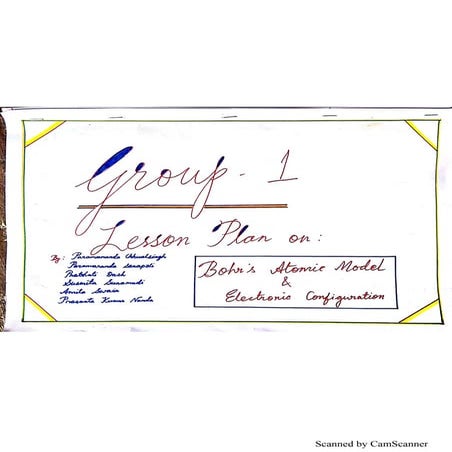 Group - 1
Lesson Plan on :
By: Paramananda Chhualsingh
Paramananda Senapati
Pratibhati Dash
Susmita Saramadi
Amita Swain
Prasanta Kumar Nanda
Bohr's Atomic Model
&
Electronic Configuration
Scanned by CamScanner